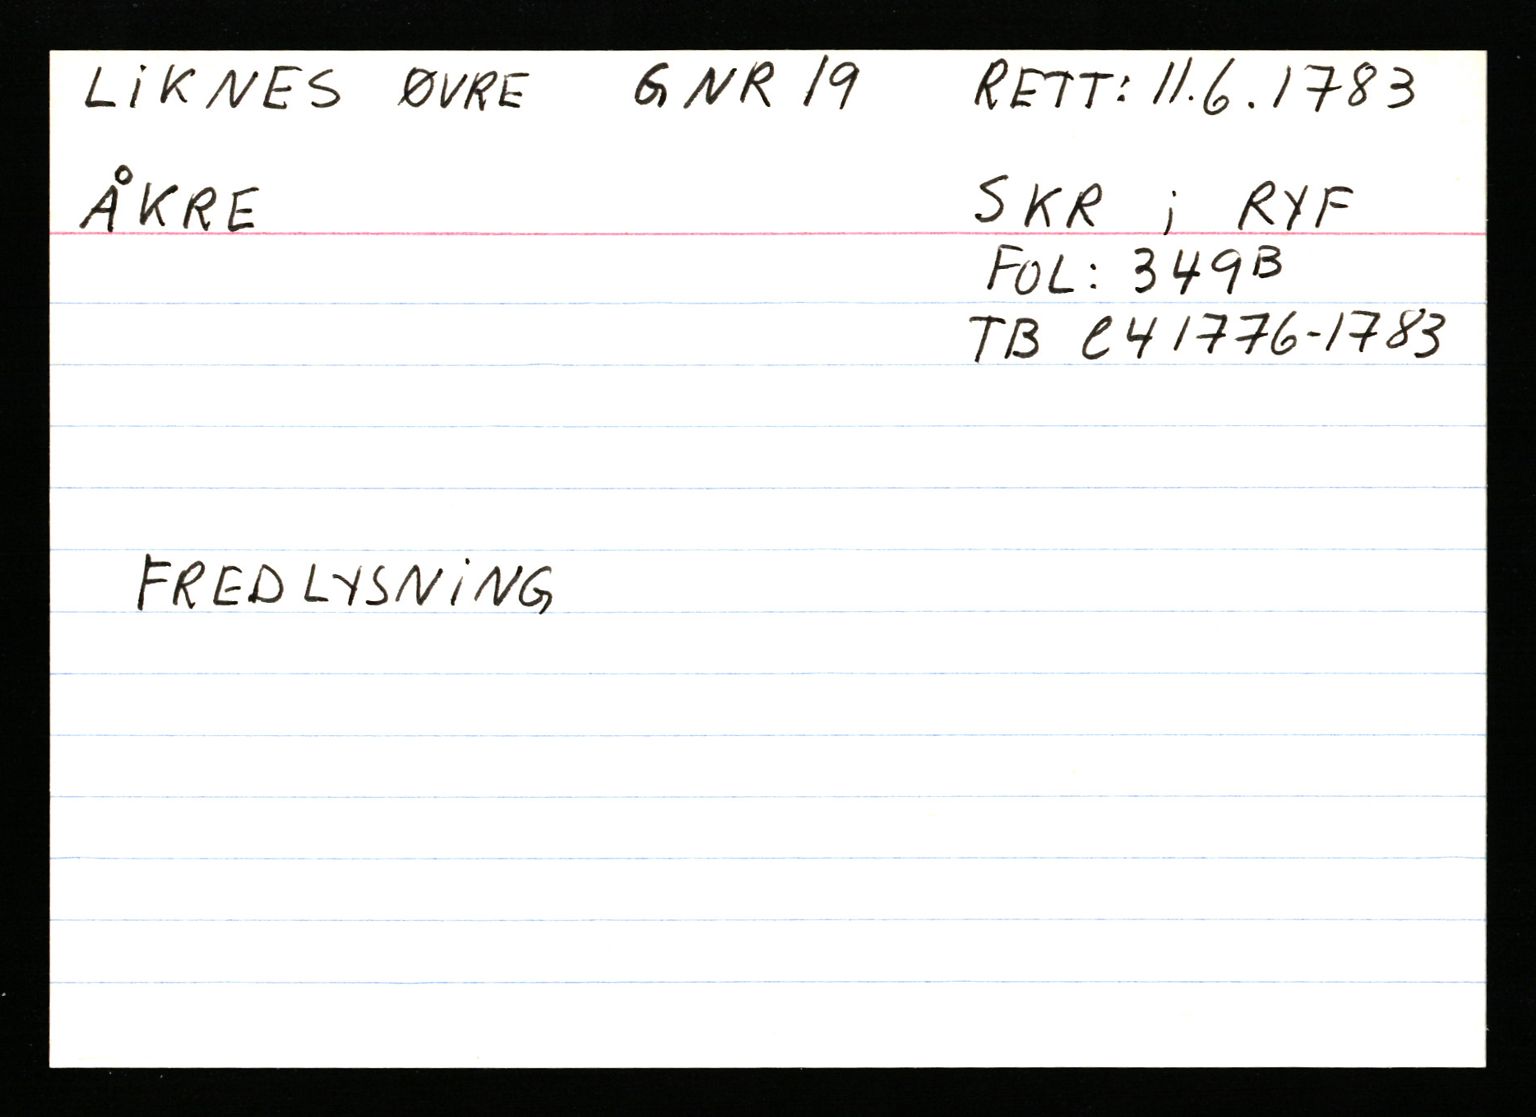 LiKNES ØVRE GNR 19 RETT: 11.6.1783
ÅKRE SKR i RYF
FOL: 349B
TB C41776-1783
FREDLYSNiNG